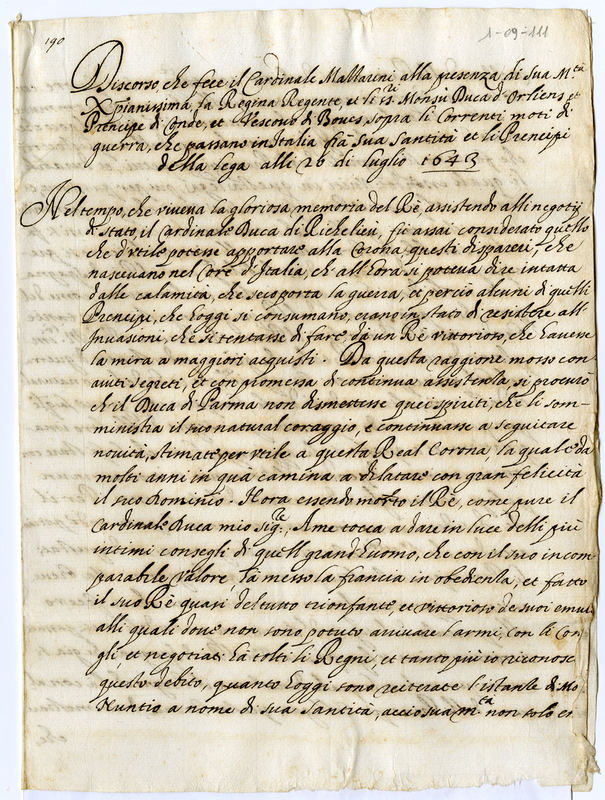 190
1-09-111
Discorso, che fece il Cardinale Mazzarini alla presenza di Sua M.ta
Xpianissima, la Regina Regente, et li ss.ri Monsù Duca d'Orliens, et
Prencipe di Conde, et Vescovo di Boves, sopra li Correnti moti di
guerra, che passano in Italia frà sua Santità et li Prencipi
della lega alli 26 di luglio 1643
Nel tempo, che viveva la gloriosa memoria del Rè, assistendo alli negotij
di stato, il Cardinale Duca di Richelieu, fù assai considerato quello
che d'utile potesse apportare alla Corona questi dispareri, che
nascevano nel Core d'Italia, ch'all'hora si poteva dire intatta
dalle calamità, che seco porta la guerra, et perciò alcuni di quelli
Prencipi, che hoggi si consumano, erano in stato di resistere all'
Invasioni, che si tentasse di fare da un Rè vittorioso, che havesse
la mira a maggiori acquisti. Da questa raggione mosso con
aiuti segreti, et con promessa di continua assistenza, si procurò
ch'il Duca di Parma non dismettesse quei spiriti, che li som-
ministra il suo natural coraggio, e continuasse a seguitare
novità, stimate per utile a questa Real Corona, la quale da
molti anni in quà camina a dilatare con gran felicità
il suo dominio. Hora essendo morto il Rè, come pure il
Cardinale Duca mio sig.re, A me tocca a dare in luce delli più
intimi consegli di quell grand'huomo, che con il suo incom-
parabile valore, hà messo la francia in obedienza, et fatto
il suo Rè quasi del tutto trionfante, et vittorioso de suoi emuli
alli quali dove non sono potuto arrivare l'armi, con li Con
gli, et negotiati hà tolti li Regni, et tanto più io riconosc
questo debito, quanto hoggi sono reiterate l'istanze di Mo
Nuntio a nome di sua Santità, acciò sua M.tà non solo